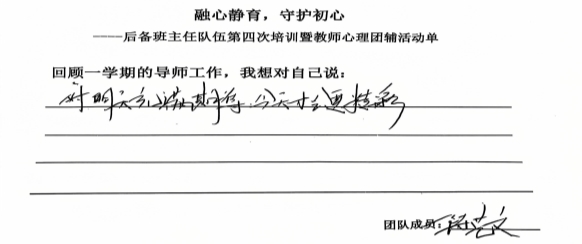 融心静育，守护初心
——后备班主任队伍第四次培训暨教师心理团辅活动单
回顾一学期的导师工作，我想对自己说：
对明天充满期待，今天才会更精彩
团队成员：